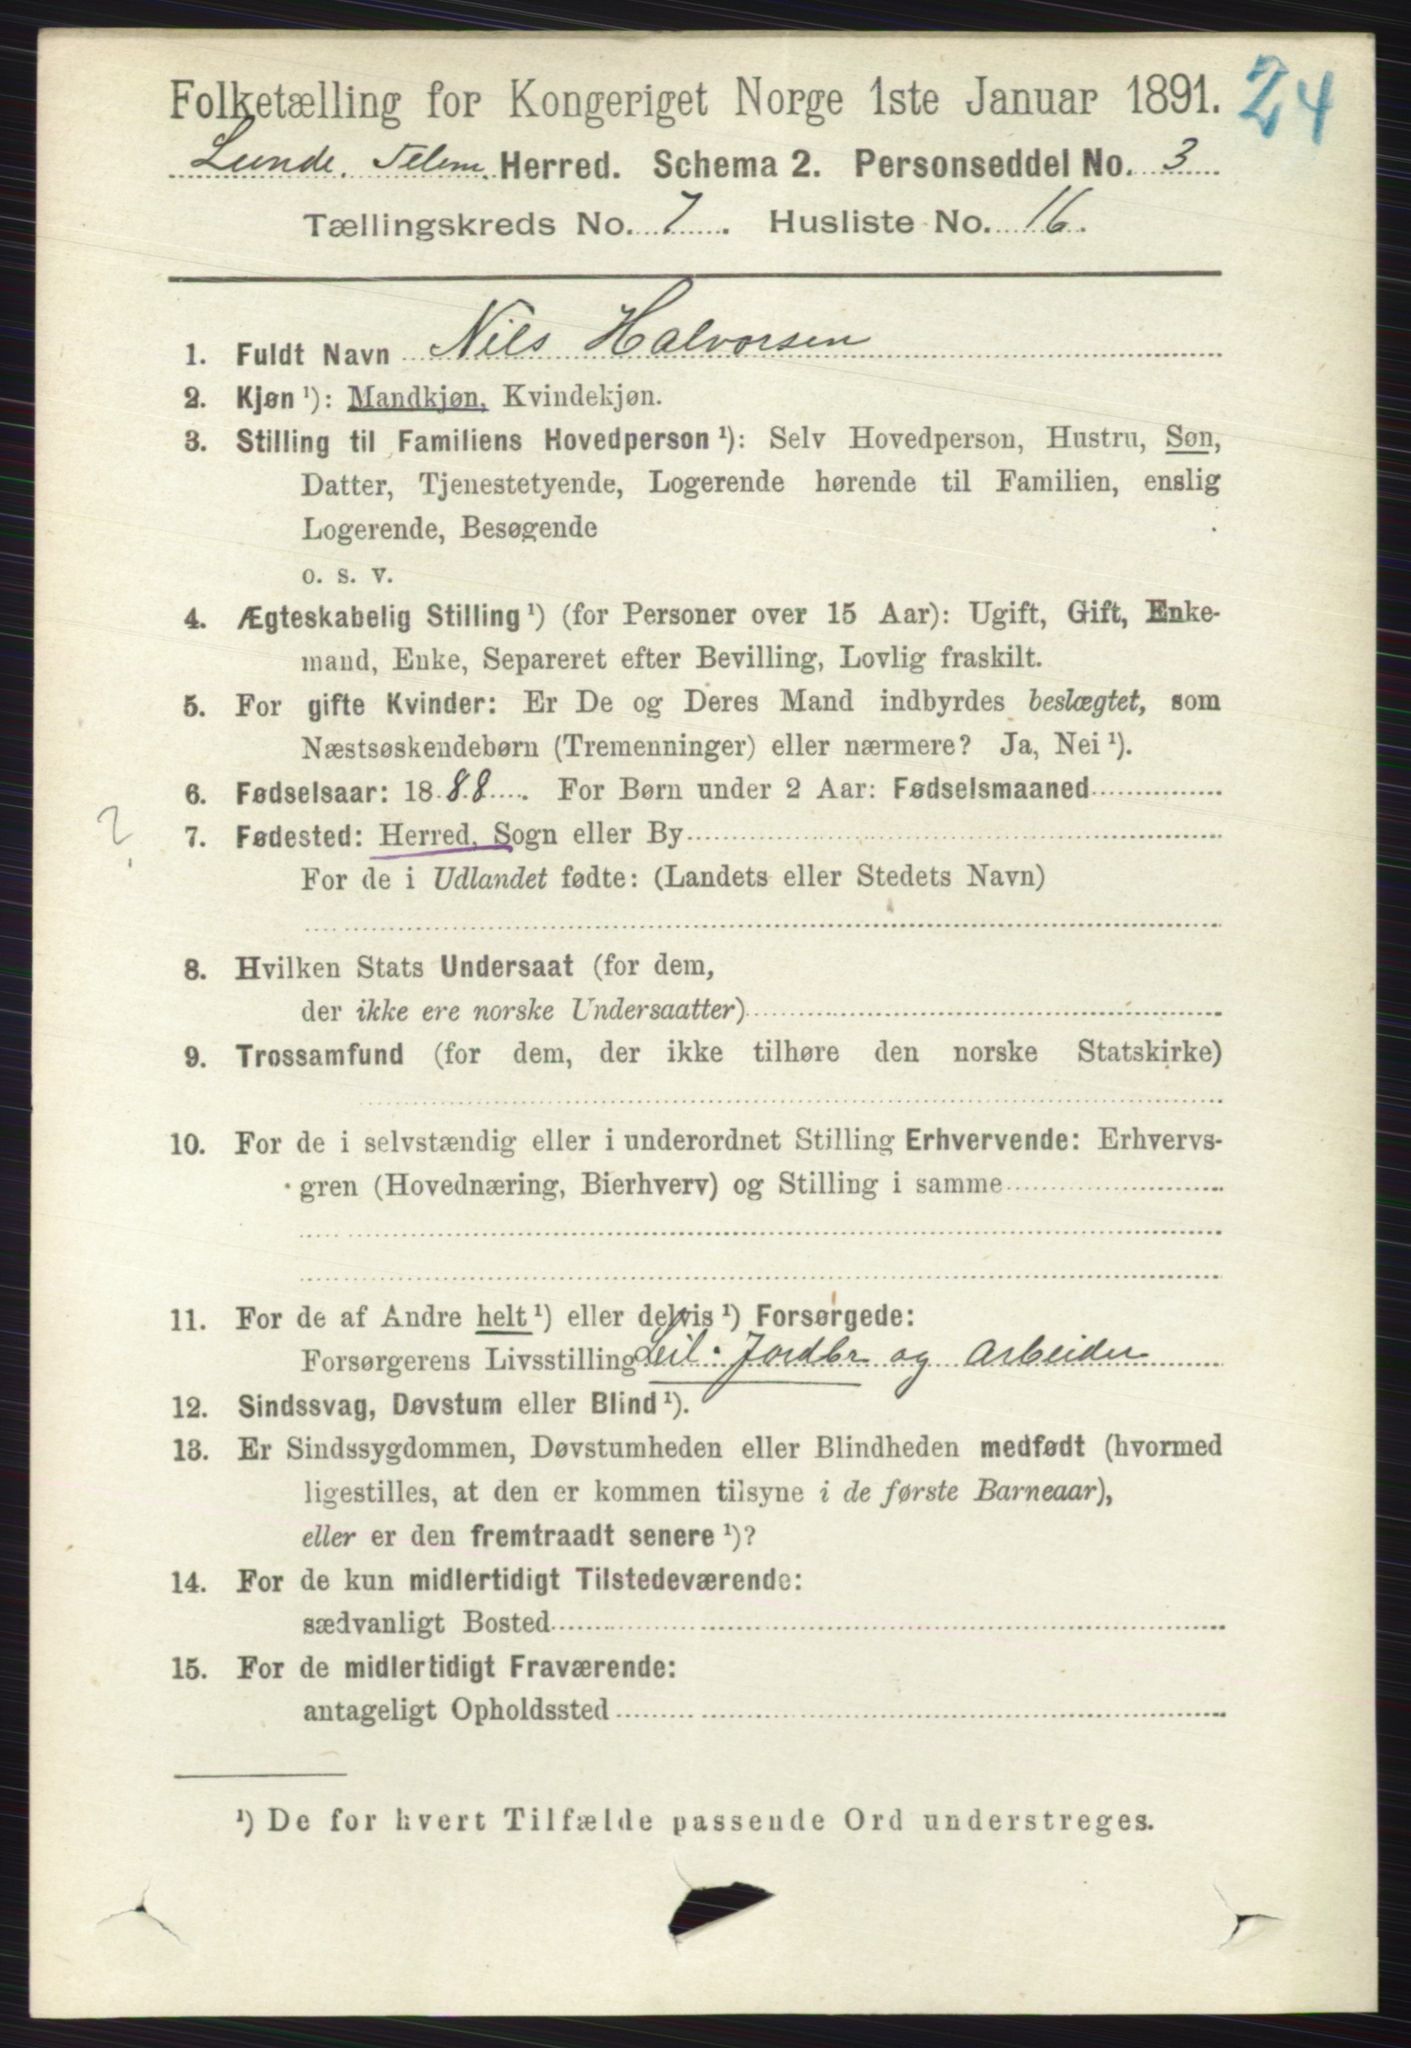 Folketælling for Kongeriget Norge 1ste Januar 1891. 24
Lunde. Telem. Herred. Schema 2. Personseddel No. 3
Tællingskreds No. 7. Husliste No. 16.
1. Fuldt Navn Nils Halvorsen
2. Kjøn ¹): Mandkjøn, Kvindekjøn.
3. Stilling til Familiens Hovedperson ¹): Selv Hovedperson, Hustru, Søn,
Datter, Tjenestetyende, Logerende hørende til Familien, enslig
Logerende, Besøgende
o. s. v.
4. Ægteskabelig Stilling ¹) (for Personer over 15 Aar): Ugift, Gift, Enke-
mand, Enke, Separeret efter Bevilling, Lovlig fraskilt.
5. For gifte Kvinder: Er De og Deres Mand indbyrdes beslægtet, som
Næstsøskendebørn (Tremenninger) eller nærmere? Ja, Nei ¹).
6. Fødselsaar: 1888. For Børn under 2 Aar: Fødselsmaaned
? 7. Fødested: Herred, Sogn eller By
For de i Udlandet fødte: (Landets eller Stedets Navn)
8. Hvilken Stats Undersaat (for dem,
der ikke ere norske Undersaatter)
9. Trossamfund (for dem, der ikke tilhøre den norske Statskirke)
10. For de i selvstændig eller i underordnet Stilling Erhvervende: Erhvervs-
gren (Hovednæring, Bierhverv) og Stilling i samme
11. For de af Andre helt ¹) eller delvis ¹) Forsørgede:
Forsørgerens Livsstilling Leil. Jordbr og Arbeider
12. Sindssvag, Døvstum eller Blind ¹).
13. Er Sindssygdommen, Døvstumheden eller Blindheden medfødt (hvormed
ligestilles, at den er kommen tilsyne i de første Barneaar),
eller er den fremtraadt senere ¹)?
14. For de kun midlertidigt Tilstedeværende:
sædvanligt Bosted
15. For de midlertidigt Fraværende:
antageligt Opholdssted
¹) De for hvert Tilfælde passende Ord understreges.